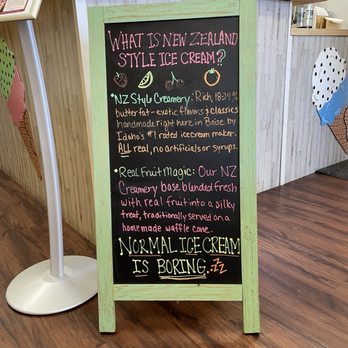 WHAT IS NEW ZEALAND
STYLE ICE CREAM?
• NZ Style Creamery: Rich, 18%
butterfat - exotic flavors & classics
handmade right here in Boise by
Idaho's #1 rated ice cream maker.
ALL real, no artificials or syrups.
• Real Fruit Magic: Our NZ
Creamery base blended fresh
with real fruit into a silky
treat, traditionally served on a
homemade waffle cone.
NORMAL ICE CREAM
IS BORING...zzz